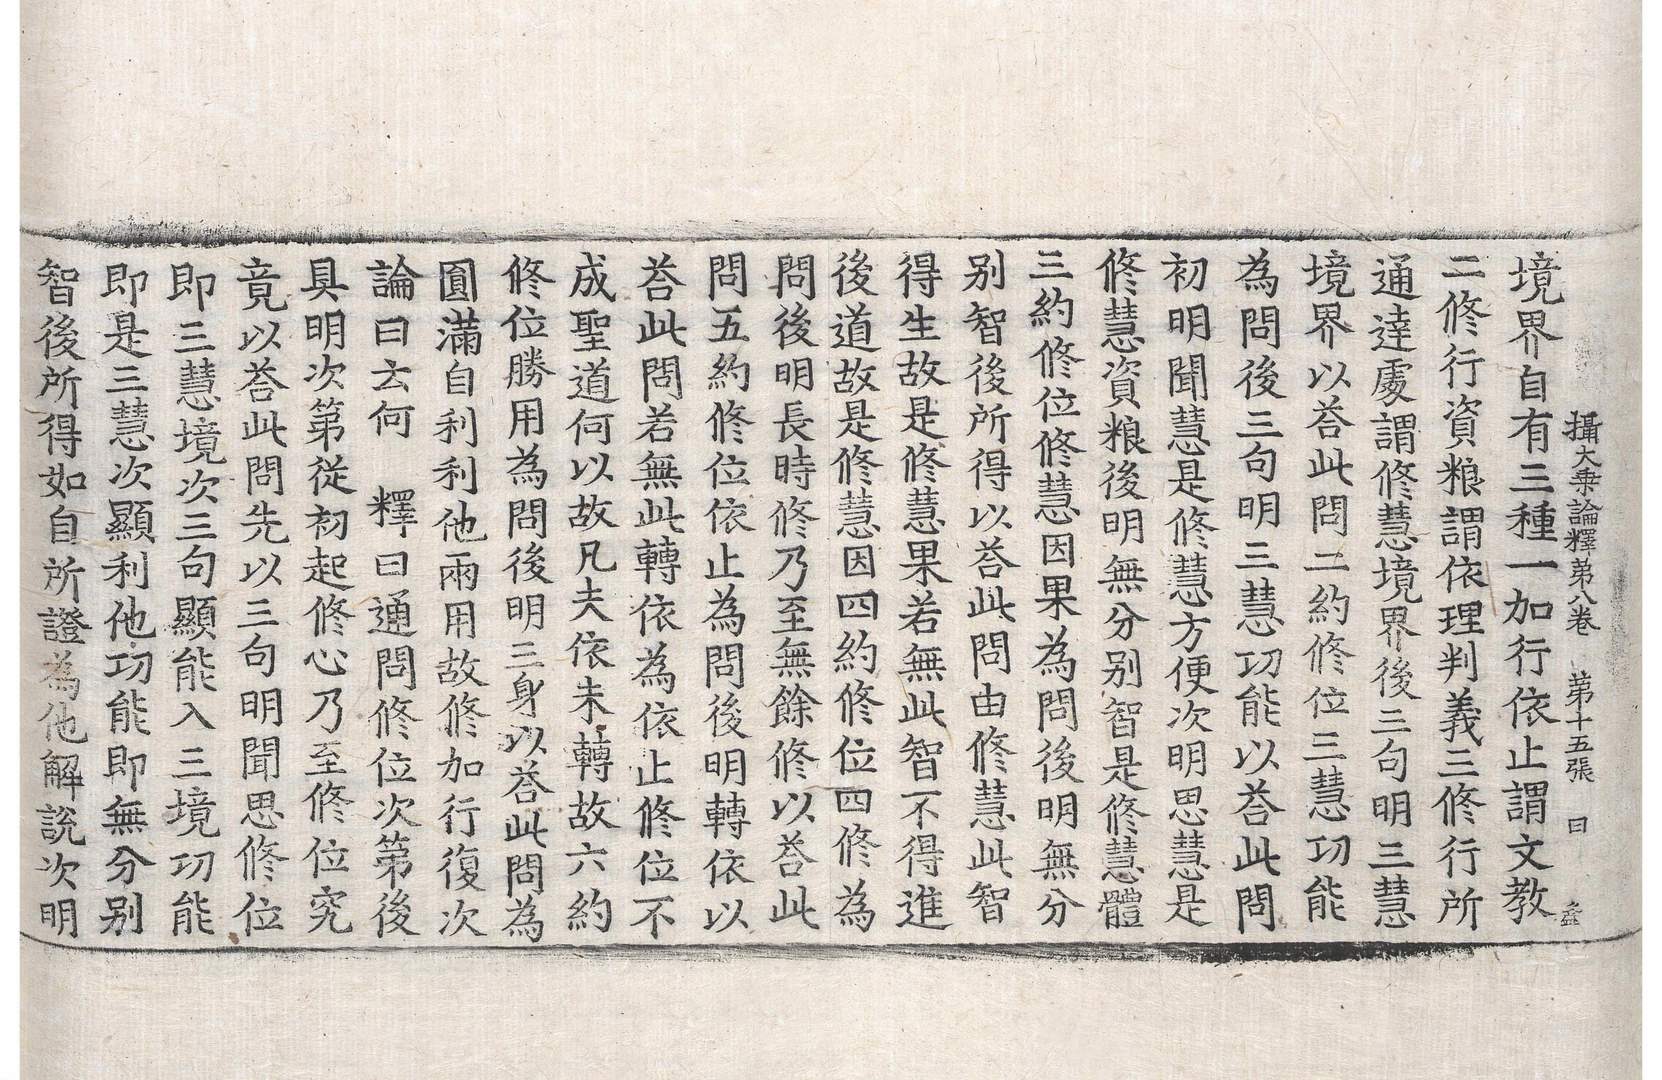 攝大乗論釋第八卷 第十五張 曰
境界自有三種一加行依止謂文教
二修行資粮謂依理判義三修行所
通達處謂修慧境界後三句明三慧
境界以荅此問二約修位三慧功能
為問後三句明三慧功能以荅此問
初明聞慧是修慧方便次明思慧是
修慧資粮後明無分别智是修慧體
三約修位修慧因果為問後明無分
别智後所得以荅此問由修慧此智
得生故是修慧果若無此智不得進
後道故是修慧因四約修位四修為
問後明長時修乃至無餘修以荅此
問五約修位依止為問後明轉依以
荅此問若無此轉依為依止修位不
成聖道何以故凡夫依未轉故六約
修位勝用為問後明三身以荅此問為
圓滿自利利他兩用故修加行復次
論曰云何 釋曰通問修位次第後
具明次第從初起修心乃至修位究
竟以荅此問先以三句明聞思修位
即三慧境次三句顯能入三境功能
即是三慧次顯利他功能即無分别
智後所得如自所證為他解說次明